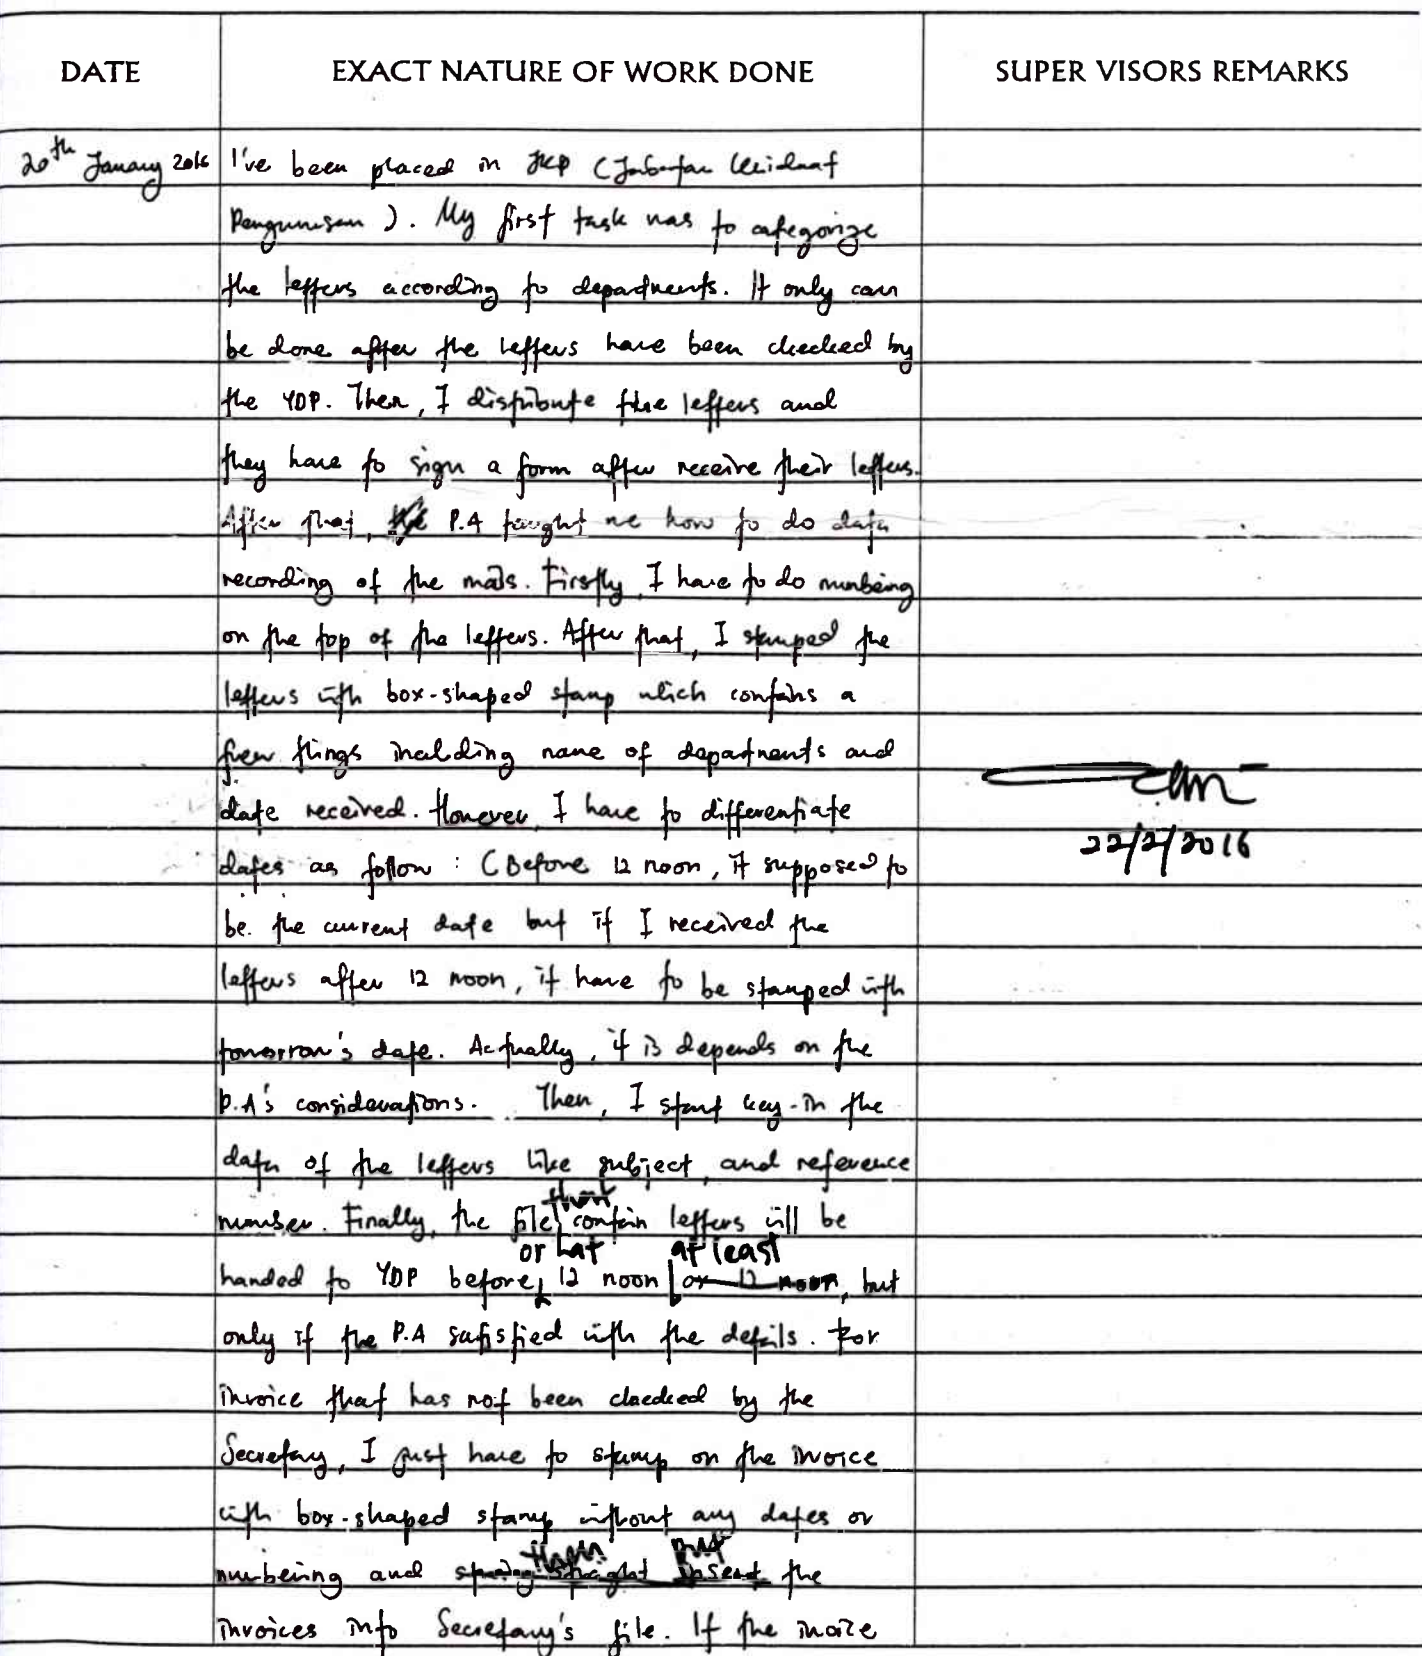 DATE
EXACT NATURE OF WORK DONE
SUPER VISORS REMARKS
20th January 2016
I've been placed in JKP (Jabatan Khidmat
Pengurusan). My first task was to categorize
the letters according to departments. It only can
be done after the letters have been checked by
the YDP. Then, I distribute the letters and
they have to sign a form after receive their letters.
After that, P.A taught me how to do data
recording of the mails. Firstly, I have to do numbering
on the top of the letters. After that, I stamped the
letters with box-shaped stamp which contains a
few things including name of departments and
date received. However, I have to differentiate
dates as follow : (Before 12 noon, it supposed to
be the current date but if I received the
letters after 12 noon, it have to be stamped with
tomorrow's date. Actually, it is depends on the
P.A's considerations. Then, I start key-in the
data of the letters like subject, and reference
number. Finally, the file that contain letters will be
handed to YDP before or at 12 noon at least or 12 noon, but
only if the P.A satisfied with the details. For
invoice that has not been checked by the
Secretary, I just have to stamp on the invoice
with box-shaped stamp without any dates or
numbering and then straight put insert the
invoices into Secretary's file. If the invoice
22/2/2016